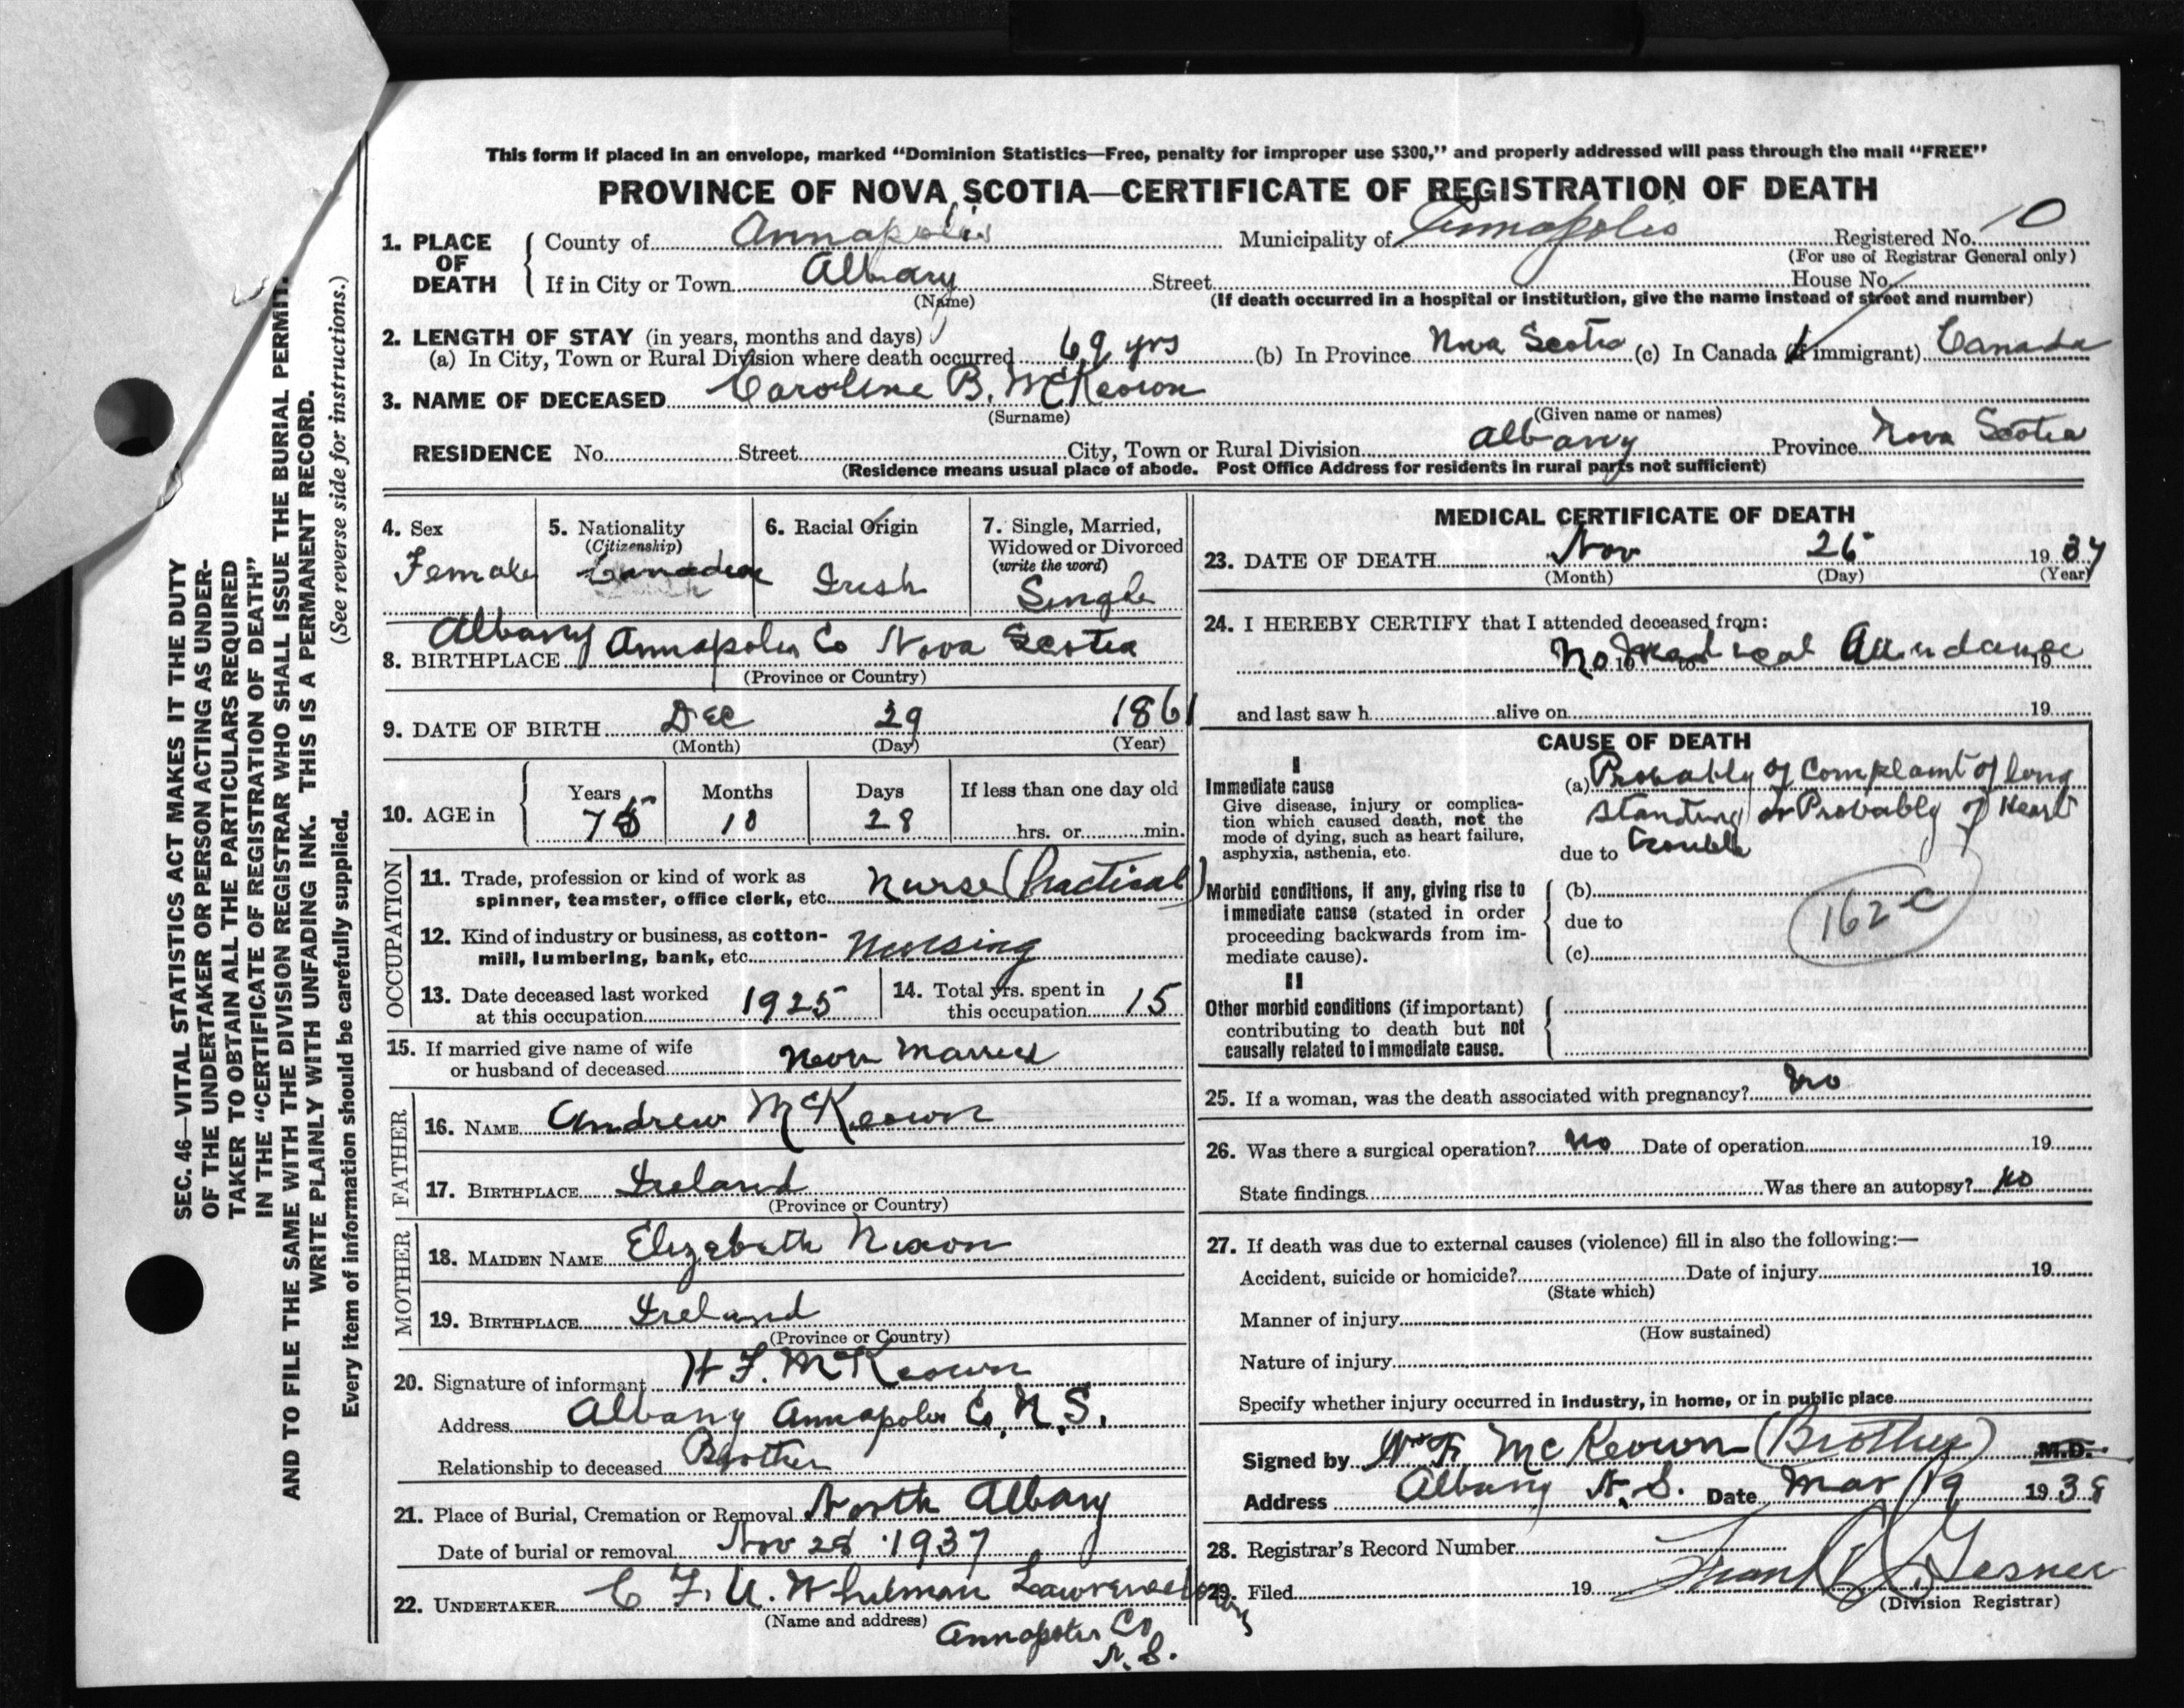 This form if placed in an envelope, marked "Dominion Statistics—Free, penalty for improper use $300," and properly addressed will pass through the mail "FREE"
PROVINCE OF NOVA SCOTIA—CERTIFICATE OF REGISTRATION OF DEATH
1. PLACE OF DEATH County of Annapolis Municipality of Annapolis Registered No. 10
(For use of Registrar General only)
If in City or Town Albany Street House No.
(Name) (If death occurred in a hospital or institution, give the name instead of street and number)
2. LENGTH OF STAY (in years, months and days)
(a) In City, Town or Rural Division where death occurred 69 yrs (b) In Province Nova Scotia (c) In Canada (if immigrant) Canada
3. NAME OF DECEASED Caroline B. McKeown
(Surname) (Given name or names)
RESIDENCE No. Street City, Town or Rural Division Albany Province Nova Scotia
(Residence means usual place of abode. Post Office Address for residents in rural parts not sufficient)
4. Sex Female
5. Nationality (Citizenship) Canadian
6. Racial Origin Irish
7. Single, Married, Widowed or Divorced (write the word) Single
8. BIRTHPLACE Albany Annapolis Co Nova Scotia
(Province or Country)
9. DATE OF BIRTH Dec 29 1861
(Month) (Day) (Year)
10. AGE in Years 75 Months 10 Days 28 If less than one day old hrs. or min.
OCCUPATION
11. Trade, profession or kind of work as
spinner, teamster, office clerk, etc. Nurse (Practical)
12. Kind of industry or business, as cotton-
mill, lumbering, bank, etc. Nursing
13. Date deceased last worked
at this occupation 1925
14. Total yrs. spent in
this occupation 15
15. If married give name of wife
or husband of deceased Never Married
FATHER
16. NAME Andrew McKeown
17. BIRTHPLACE Ireland
(Province or Country)
MOTHER
18. MAIDEN NAME Elizabeth Nixon
19. BIRTHPLACE Ireland
(Province or Country)
20. Signature of informant W F. McKeown
Address Albany Annapolis Co, N.S.
Relationship to deceased Brother
21. Place of Burial, Cremation or Removal North Albany
Date of burial or removal Nov 28 1937
22. UNDERTAKER C F. U. Whitman Lawrencetown
(Name and address) Annapolis Co
N.S.
MEDICAL CERTIFICATE OF DEATH
23. DATE OF DEATH Nov 26 1937
(Month) (Day) (Year)
24. I HEREBY CERTIFY that I attended deceased from:
No Medical Attendance 19 to 19
and last saw h alive on 19
CAUSE OF DEATH
I
Immediate cause
Give disease, injury or complica-
tion which caused death, not the
mode of dying, such as heart failure,
asphyxia, asthenia, etc.
(a) Probably of Complaint of long
standing or Probably of Heart
due to trouble
Morbid conditions, if any, giving rise to
immediate cause (stated in order
proceeding backwards from im-
mediate cause).
(b)
due to
(c)
162 c
II
Other morbid conditions (if important)
contributing to death but not
causally related to immediate cause.
25. If a woman, was the death associated with pregnancy? No
26. Was there a surgical operation? No Date of operation 19
State findings Was there an autopsy? No
27. If death was due to external causes (violence) fill in also the following:—
Accident, suicide or homicide? Date of injury 19
(State which)
Manner of injury
(How sustained)
Nature of injury
Specify whether injury occurred in industry, in home, or in public place
Signed by Wm F. McKeown (Brother) M.D.
Address Albany N.S. Date Mar 19 1938
28. Registrar's Record Number
29. Filed 19 Gesner
(Division Registrar)
SEC. 46—VITAL STATISTICS ACT MAKES IT THE DUTY
OF THE UNDERTAKER OR PERSON ACTING AS UNDER-
TAKER TO OBTAIN ALL THE PARTICULARS REQUIRED
IN THE "CERTIFICATE OF REGISTRATION OF DEATH"
AND TO FILE THE SAME WITH THE DIVISION REGISTRAR WHO SHALL ISSUE THE BURIAL PERMIT.
WRITE PLAINLY WITH UNFADING INK. THIS IS A PERMANENT RECORD.
Every item of information should be carefully supplied. (See reverse side for instructions.)